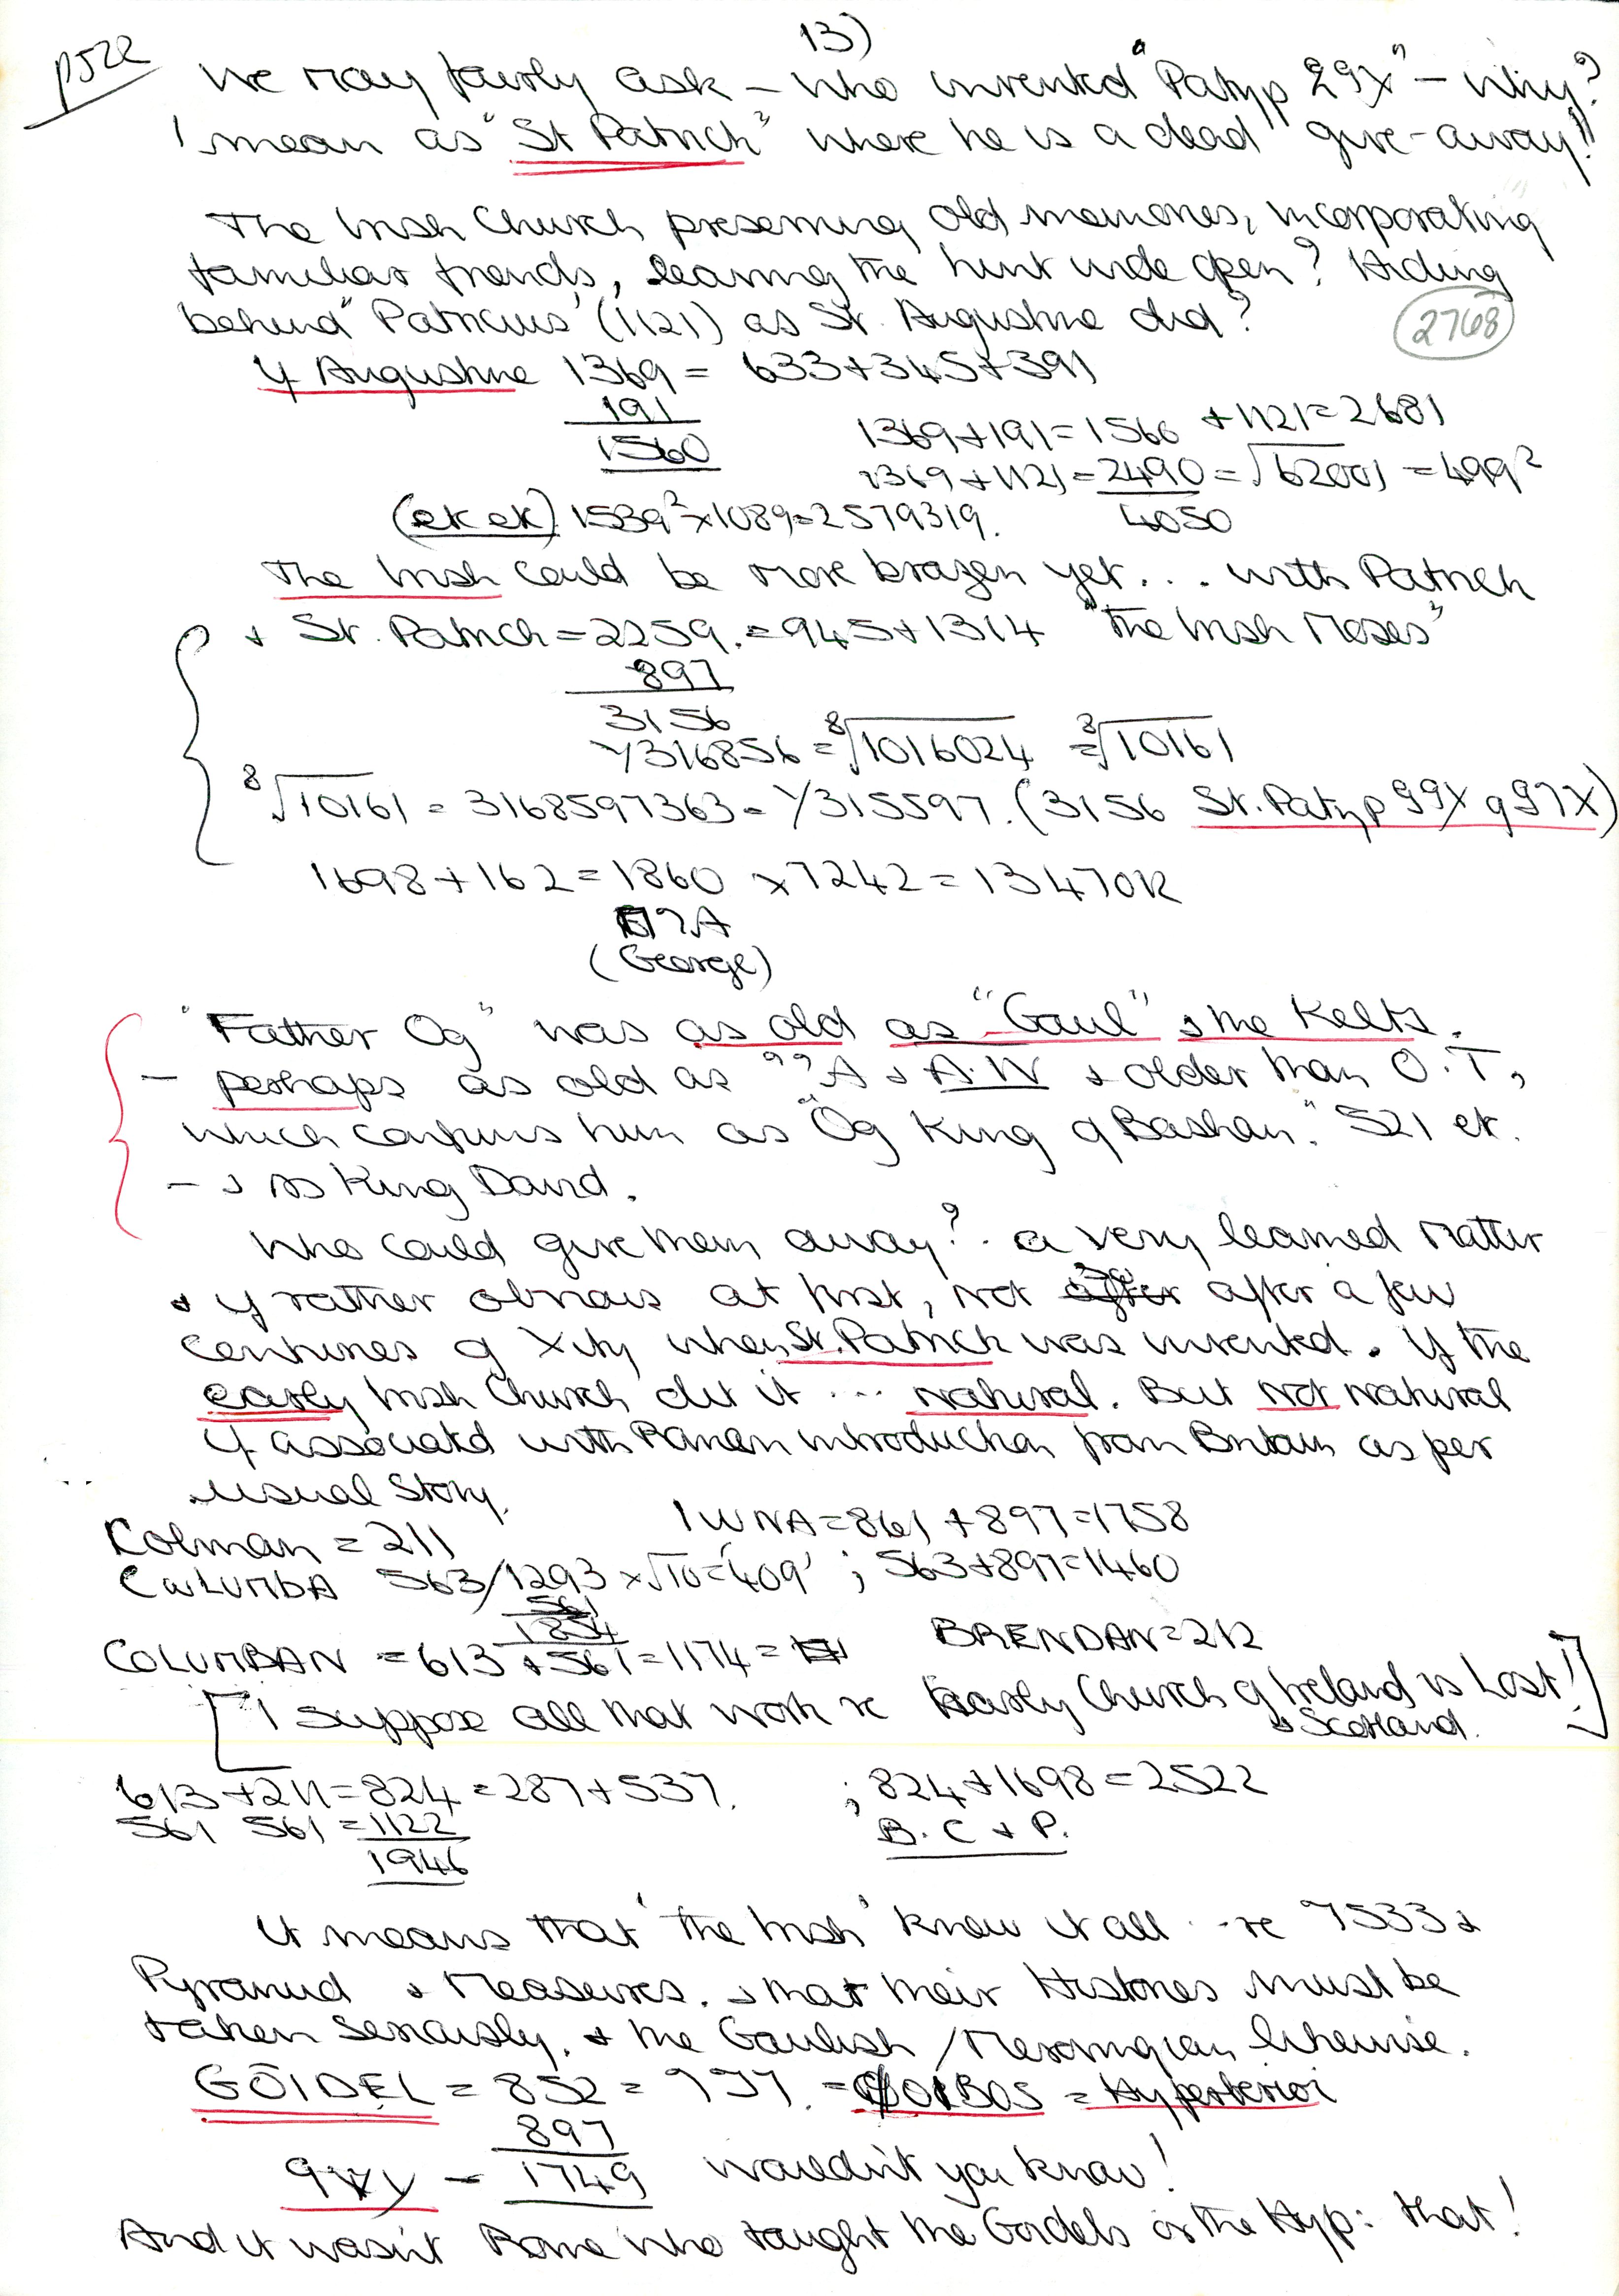 13)
p522
We may fairly ask – who invented "Patyp 99X" – why?
I mean as "St Patrick" where he is a dead give-away!!
The Irish Church preserving old memories, incorporating
familiar trends, leaving the hint wide open? Hiding
behind "Patricius" (1121) as St. Augustine did?
2768
if Augustine 1369 = 633+345+391
191
1560
1369+191=1560 +1121=2681
1369+1121=2490=√62001=499²
4050
(ek ek) 1539²×1089=2579319.
The Irish could be more brazen yet... with Patrick
+ St. Patrick=2259.=945+1314 "The Irish Moses"
897
3156
Y316856=⁸√1016024 =³√10161
⁸√10161=3168597363=Y315597.(3156 St. Patyp 99X 997X)
1698+162=1860 ×7242=13470R
(George)
"Father Og" was as old as "Gaul" & the Kelts.
– perhaps as old as 99A & A.W & older than O.T,
which confirms him as "Og King of Bashan." 521 et.
– & as King David.
Who could give them away? a very learned matter
& if rather obvious at first, not after a few
centuries of Xity when St. Patrick was invented. If the
early Irish Church did it ... natural. But not natural
if associated with Roman introduction from Britain as per
usual Story.
Kolman = 211
IWNA=861+897=1758
CωLUMBA 563/1293×√10=409' ; 563+897=1460
561
1854
COLUMBAN =613+561=1174=
BRENDAN=212
[I suppose all that work re Early Church of Ireland is Lost!]
& Scotland.
613+211=824=287+537. ; 824+1698=2522
561 561=1122
B. C & P.
1946
It means that 'the Irish' knew it all - re 7533 &
Pyramid & Measures. & that their Histories must be
taken seriously, & the Gaulish / Merovingian likewise.
GŌIDEL = 852 = 997. = ΦOIBOS = Hyperberior
897
1749 wouldn't you know!
And it wasn't Rome who taught the Goidels or the Hyp: that!